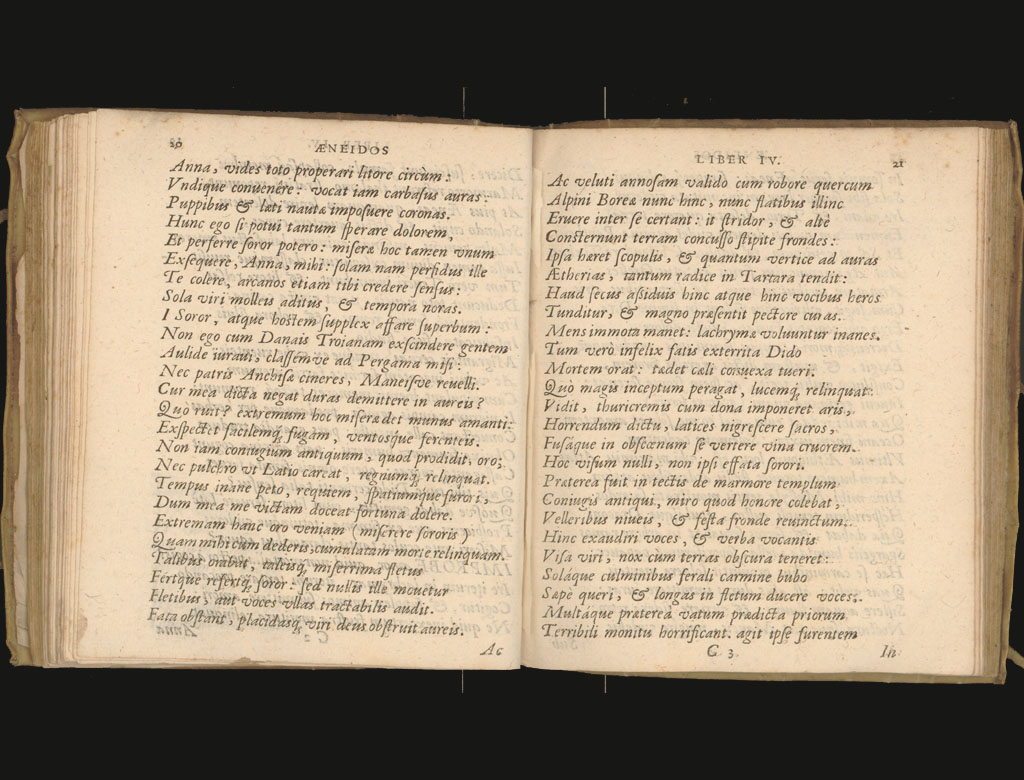 20
ÆNEIDOS
Anna, vides toto properari litore circum:
Vndique conuenêre: vocat iam carbaſus auras:
Puppibus & læti nautæ impoſuere coronas.
Hunc ego ſi potui tantum ſperare dolorem,
Et perferre ſoror potero: miſeræ hoc tamen vnum
Exſequere, Anna, mihi: ſolam nam perfidus ille
Te colere, arcanos etiam tibi credere ſenſus:
Sola viri molleis aditus, & tempora noras.
I Soror, atque hoſtem ſupplex affare ſuperbum:
Non ego cum Danais Troianam exſcindere gentem
Aulide iuraui, claſſemve ad Pergama miſi:
Nec patris Anchiſæ cineres, Maneiſve reuelli.
Cur mea dicta negat duras demittere in aureis?
Quò ruit? extremum hoc miſeræ det munus amanti:
Exſpectet facilemq́; fugam, ventoſque ferenteis.
Non iam coniugium antiquum, quod prodidit, oro;
Nec pulchro vt Latio careat, regnumq́; relinquat.
Tempus inane peto, requiem, ſpatiumque furori,
Dum mea me victam doceat fortuna dolere.
Extremam hanc oro veniam (miſerere ſororis)
Quam mihi cum dederis, cumulatam morte relinquam.
Talibus orabat, taleiſq́; miſerrima fletus
Fértque refertq́; ſoror: ſed nullis ille mouetur
Fletibus, aut voces vllas tractabilis audit.
Fata obſtant, placidaſq́; viri deus obſtruit aureis.
Ac
LIBER IV.
21
Ac veluti annoſam valido cum robore quercum
Alpini Boreæ nunc hinc, nunc flatibus illinc
Eruere inter ſe certant: it ſtridor, & altè
Conſternunt terram concuſſo ſtipite frondes:
Ipſa hæret ſcopulis, & quantum vertice ad auras
Ætherias, tantum radice in Tartara tendit:
Haud ſecus aſsiduis hinc atque hinc vocibus heros
Tunditur, & magno præſentit pectore curas.
Mens immota manet: lachrymæ voluuntur inanes.
Tum verò infelix fatis exterrita Dido
Mortem orat: tædet cæli conuexa tueri.
Quò magis inceptum peragat, lucemq́; relinquat:
Vidit, thuricremis cum dona imponeret aris,
Horrendum dictu, latices nigreſcere ſacros,
Fuſáque in obſcœnum ſe vertere vina cruorem.
Hoc viſum nulli, non ipſi effata ſorori.
Præterea fuit in tectis de marmore templum
Coniugis antiqui, miro quod honore colebat,
Velleribus niueis, & feſta fronde reuinctum.
Hinc exaudiri voces, & verba vocantis
Viſa viri, nox cum terras obſcura teneret:
Soláque culminibus ferali carmine bubo
Sæpe queri, & longas in fletum ducere voces:
Multáque prætereà vatum prædicta priorum
Terribili monitu horrificant. agit ipſe furentem
C 3
In